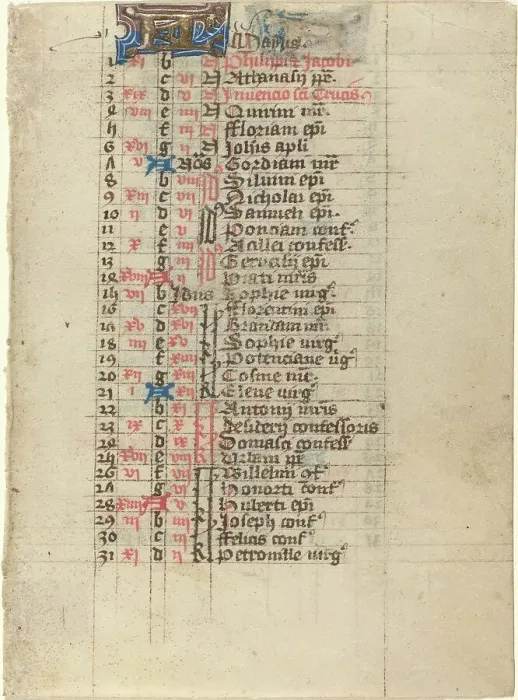 KL Maius
1 xi b Philippi et Jacobi
2 c vi Athanasij
3 xix d v Invencio sci Crucis
4 viii e iiii Quirini mr
5 f iii ffloriani epi
6 xvi g ii Johis apli
7 v A Nos Gordiani mr
8 b viii Siluini epi
9 xiii c vii Nicholai epi
10 ii d vi Samueh epi
11 e v Ponciani conf
12 x f iiii Acillei confess
13 g iii Gervasij epi
14 xviii A ii mris
15 vii b Idus Sophie virg
16 c xvii fflorentini epi
17 xv d xvi Brandani
18 iiii e xv Sophie virg
19 f xiiii Potenciane
20 xii g xiii Cosme mr
21 i A xii Elene virg
22 b xi Antonij mris
23 ix c x Desiderij confessoris
24 d ix Donaciani confess
25 xvii e viii Urbani
26 vi f vii Willelmi
27 g vi Honorti conf
28 xiiii A v Huberti epi
29 iii b iiii Joseph conf
30 c iii ffelicis conf
31 xi d ii Petronille virg